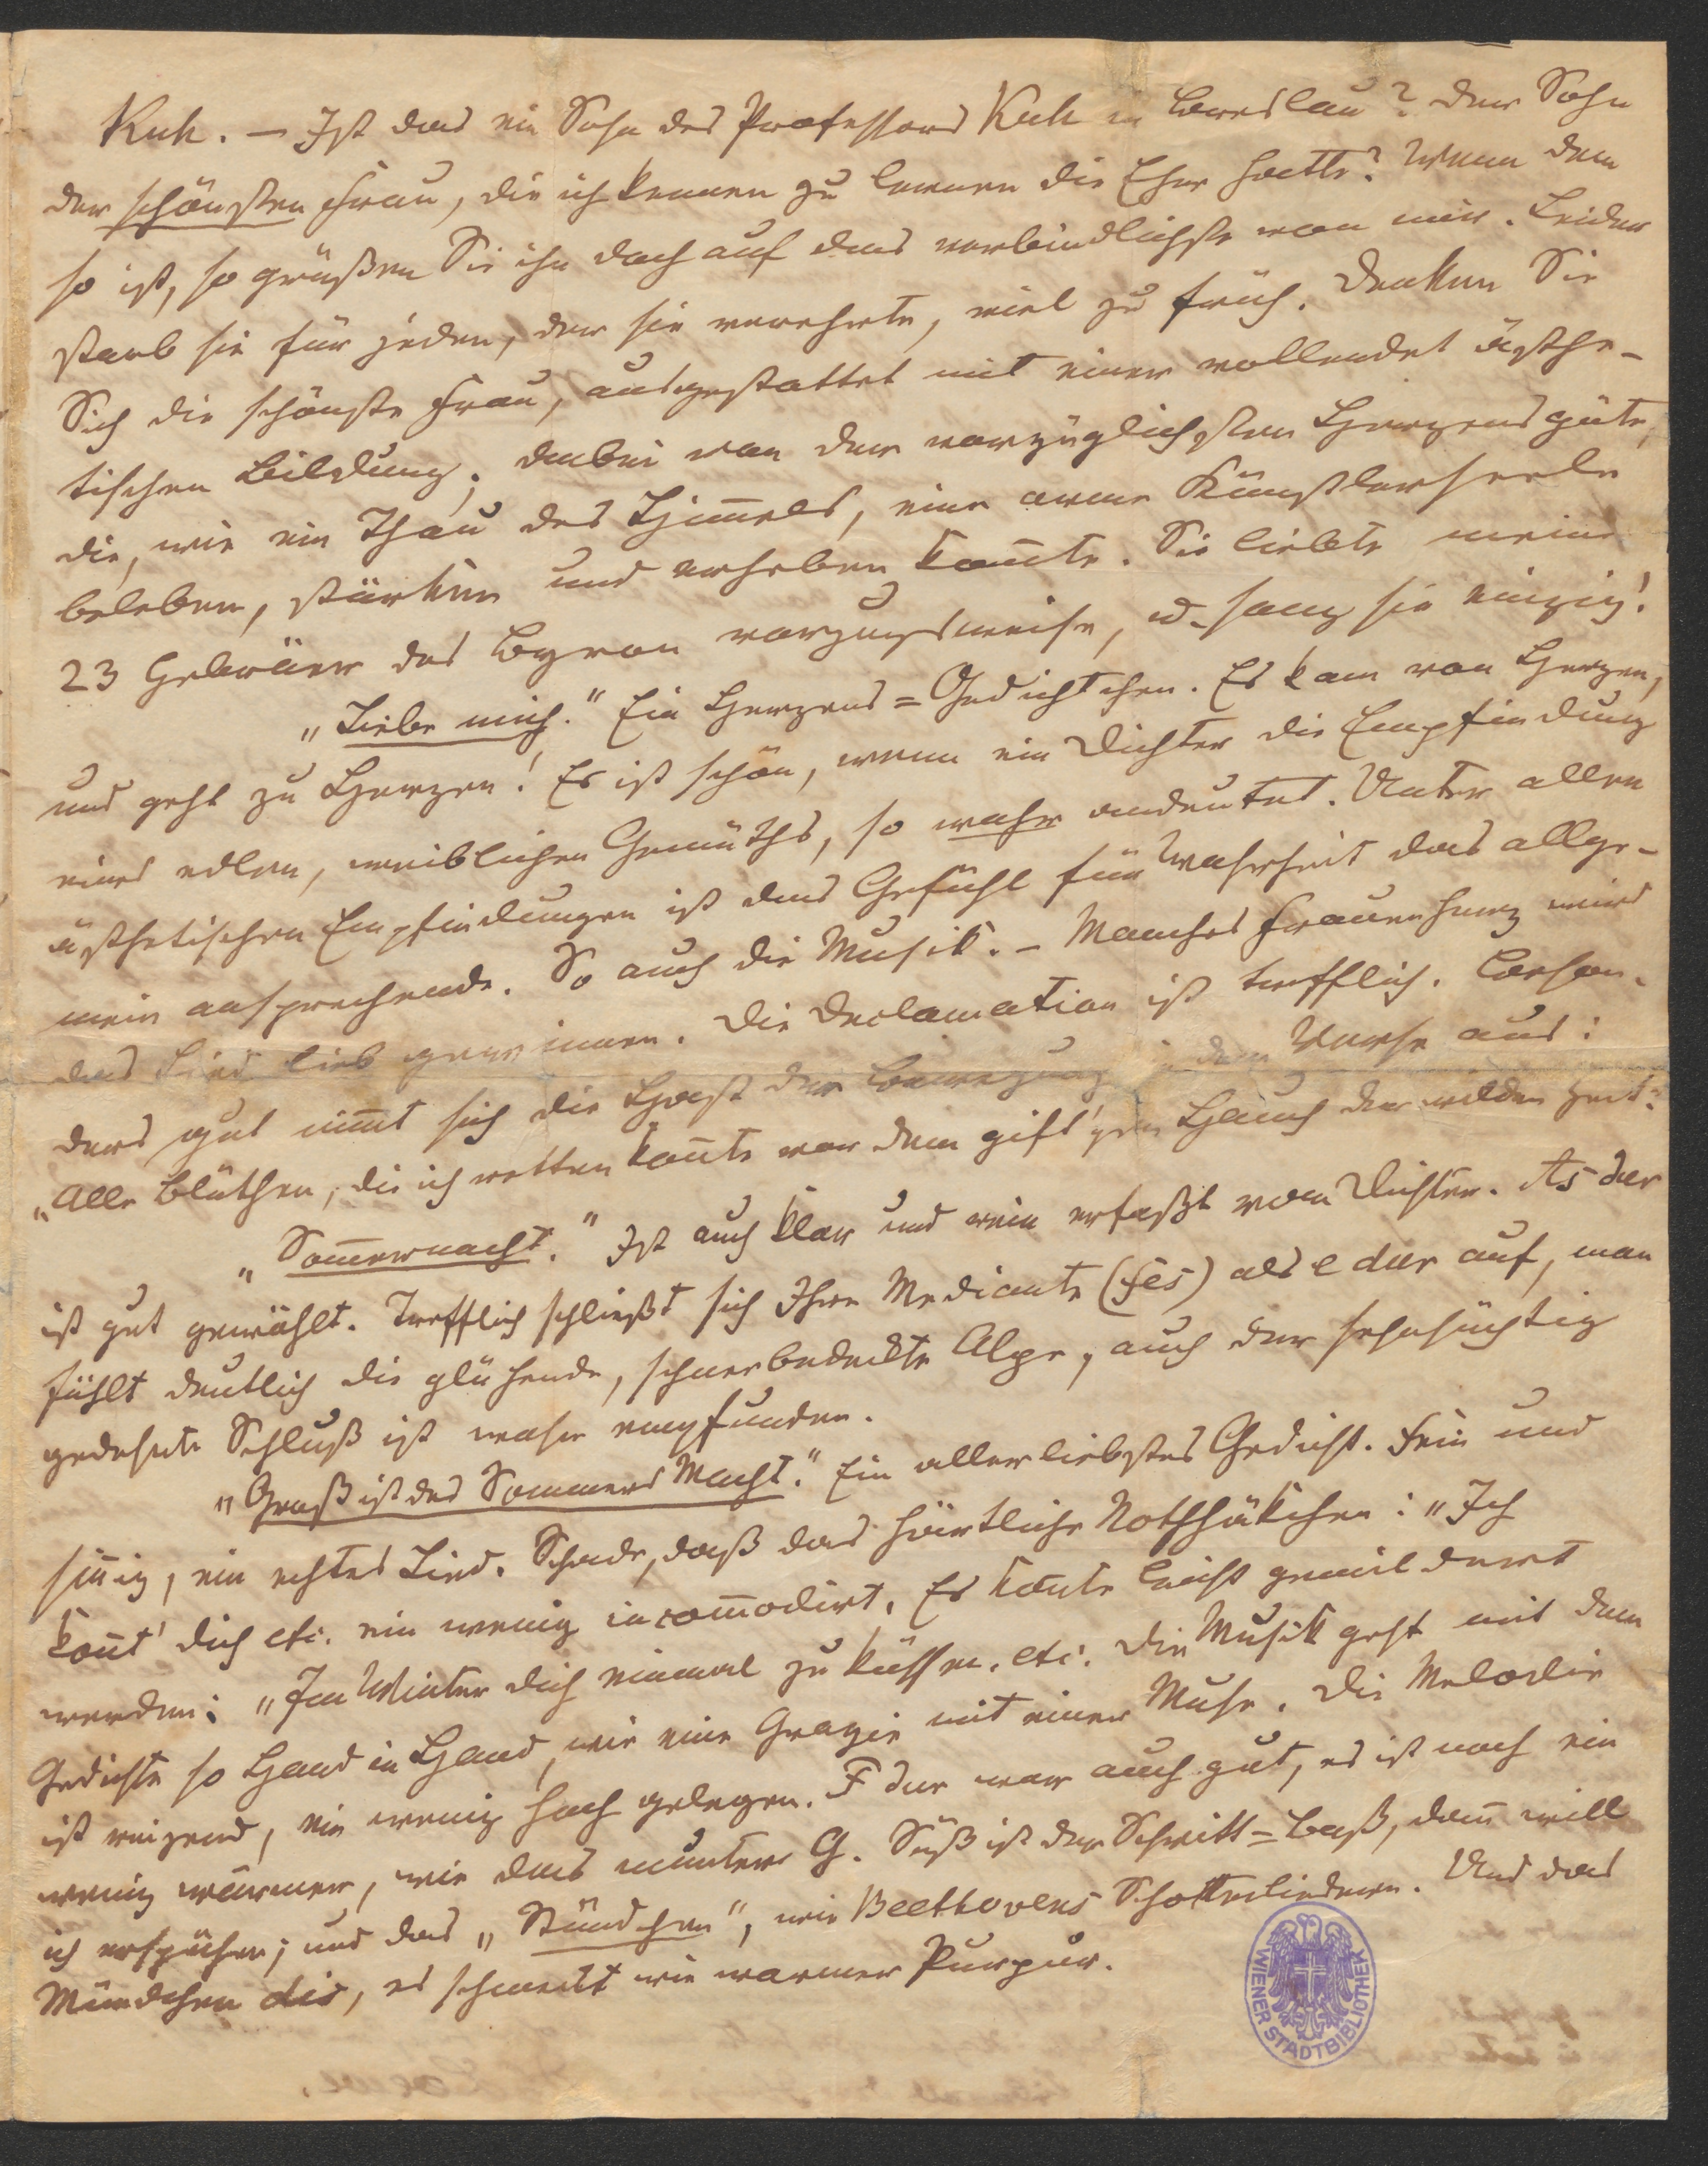 Kuh. – Ist das ein Sohn des Professors Kuh in Breslau? Der Sohn
der schönsten Frau, die ich kennen zu lernen die Ehre hatte? Wenn dem
so ist, so grüßen Sie ihn doch auf das verbindlichste von mir. Leider
starb sie für jeden, der sie verehrte, viel zu früh. Denken Sie
Sich die schönste Frau, ausgestattet mit einer vollendet ästhe-
tischen Bildung; dabei von der vorzüglichsten Herzensgüte,
die, wie ein Thau des Him̅els, eine arme Künstlerseele
beleben, stärken und erheben kon̅te. Sie liebte meine
23 Hebräer des Byron vorzugsweise, u. sang sie einzig!
„Liebe mich." Ein Herzens=Gedichtchen. Es kam von Herzen,
und geht zu Herzen! Es ist schön, wenn ein Dichter die Empfindung
eines edlen, weiblichen Gemüths, so wahr andeutet. Unter allen
ästhetischen Empfindungen ist das Gefühl für Wahrheit das allge-
mein ansprechende. So auch die Musik. – Manches Frauenherz wird
das Lied lieb gewinnen. Die Declamation ist trefflich. Beson-
ders gut nim̅t sich die Hast der Bewegung in dem Verse aus:
„Alle Blüthen, die ich retten kon̅te vor dem gift'gen Hauch der wilden Zeit:
„Som̅ernacht." Ist auch klar und rein erfaßt vom Dichter. As dur
ist gut gewählt. Trefflich schließt sich Ihre Mediante (fes) als e dur auf, man
fühlt deutlich die glühende, schneebedeckte Alpe, auch der sehnsüchtig
gedehnte Schluß ist wahr empfunden.
„Groß ist des Sommers Macht." Ein allerliebstes Gedicht. Fein und
sin̅ig, ein echtes Lied. Schade, daß das härtliche Nothhäkchen: „Ich
kon̅t' dich etc. ein wenig incom̅odirt. Es kön̅te leicht gemildert
werden: „Im Winter dich einmal zu küssen. etc. Die Musik geht mit dem
Gedichte so Hand in Hand, wie eine Grazie mit einer Muse. Die Melodie
ist reizend, ein wenig hoch gelegen. F dur war auch gut, es ist noch ein
wenig wärmer, wie das muntere G. Süß ist der Schritt=Baß, dan̅ will
ich erspähen; und das „Stündchen", wie Beethovens Schottenliedern. Und das
Mündchen dis, es schmeckt wie warmer Purpur.
WIENER STADTBIBLIOTHEK